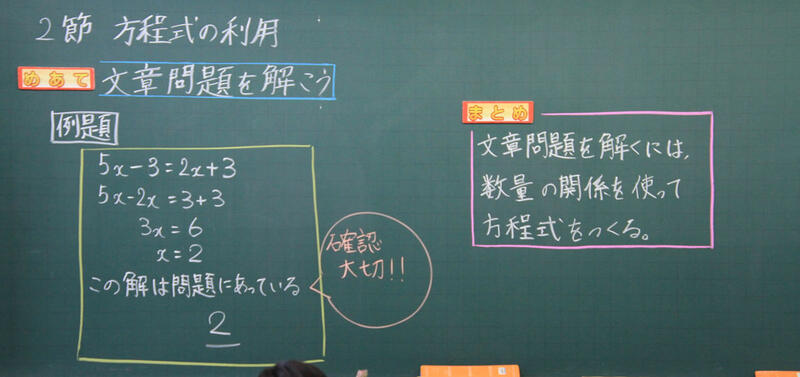 2節 方程式の利用
めあて 文章問題を解こう
例題
5x-3=2x+3
5x-2x=3+3
3x=6
x=2
この解は問題にあっている
2
確認
大切!!
まとめ
文章問題を解くには、
数量の関係を使って
方程式をつくる。